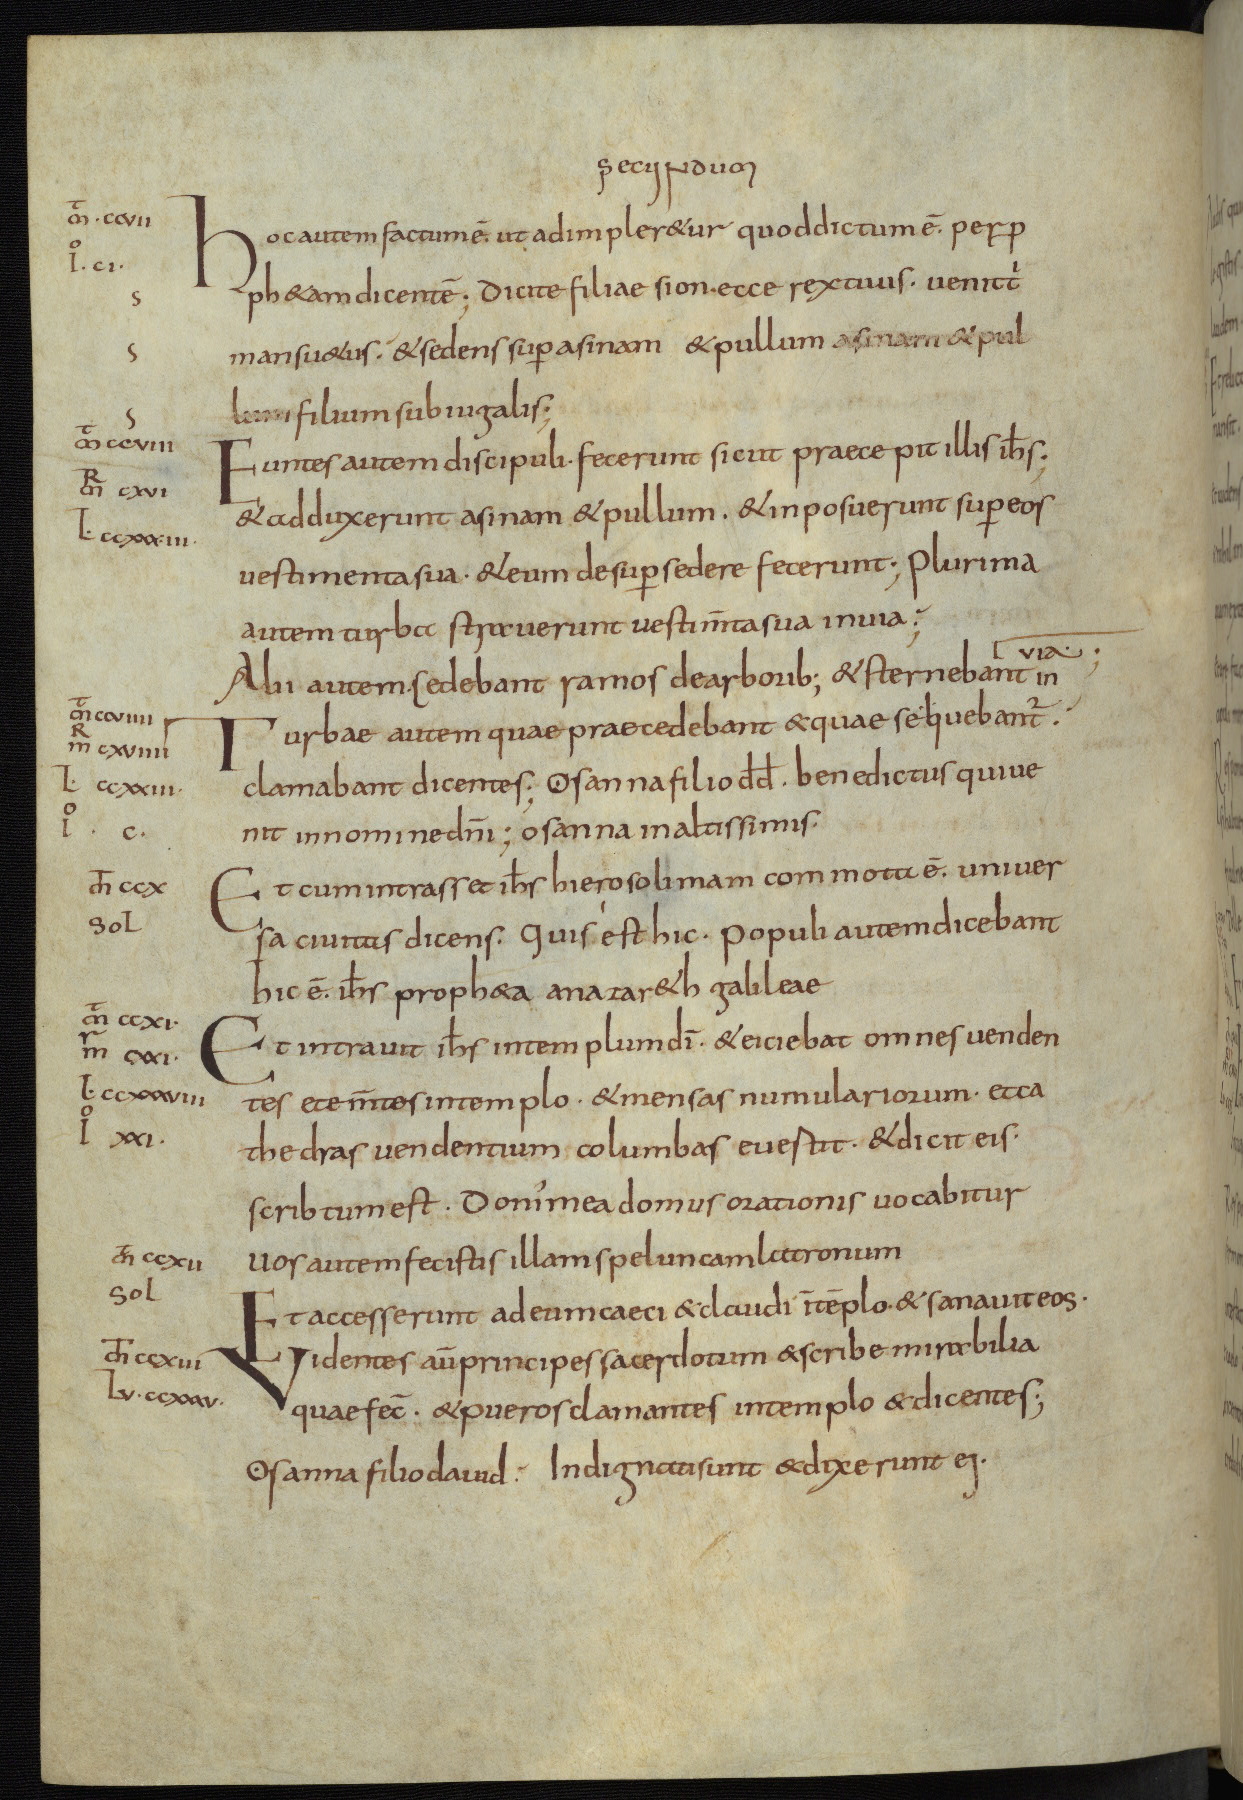 secundum
m̄ · ccvii
Hoc autem factum ē. ut adimpler&ur quod dictum ē. per p
Io · ci ·
ph&am dicentē; Dicite filiae sion · ecce rex tuus · venit t
s
mansu&us · & sedens sup asinam & pullum asinam & pul
s
lum filium subiugalis;
s
m̄ ccviii
Euntes autem discipuli · fecerunt sicut praecepit illis ih̄s;
mR cxvi
& adduxerunt asinam & pullum · & inposuerunt sup eos
L · ccxxxiii ·
vestimenta sua · & eum desup sedere fecerunt; Plurima
autem turba straverunt vestim̄ta sua in via;
via · ;
Alii autem · cedebant ramos de arborib; & sternebant in
m̄ ccviiii
Turbae autem quae praecedebant & quae sequebant2 ·
mR cxviiii
clamabant dicentes; Osanna filio dd̄ · benedictus qui ve
L · ccxxiii ·
Io · c ·
nit in nomine dn̄i; osanna in altissimis ·
m̄ ccx
Et cum intrasset ih̄s hierosolimam commota ē. univer
sol
sa civitas dicens · Quis est hic · Populi autem dicebant
hic ē. ih̄s proph&a a nazar&h galileae
m̄ ccxi ·
Et intravit ih̄s in templum dī · & eiciebat omnes venden
mr cxxi ·
L · ccxxxviii
tes et em̄tes in templo · & mensas numulariorum · et ca
Io xxi ·
thedras vendentium columbas evertit · & dicit eis ·
scribtum est · Domus mea domus orationis vocabitur
m̄ ccxii
vos autem fecistis illam speluncam latronum
sol
Et accesserunt ad eum caeci & claudi ītēplo · & sanavit eos ·
m̄ ccxiii
Videntes aū principes sacerdotum & scribe mirabilia
Lu · ccxxxv ·
quae fec̄ · & pueros clamantes in templo & dicentes;
Osanna filio david · Indignati sunt & dixerunt ei ·